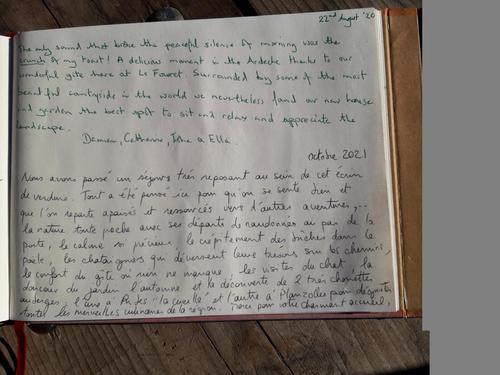 22nd August '20
The only sound that broke the peaceful silence of morning was the
crunch of my toast! A delicious moment in the Ardèche thanks to our
wonderful gîte here at Le Fauret. Surrounded by some of the most
beautiful countryside in the world we nevertheless found our new house
and garden the best spot to sit and relax and appreciate the
landscape.
Damien, Catherine, & Ella.
octobre 2021
Nous avons passé un séjour très reposant au sein de cet écrin
de verdure. Tout a été pensé ici pour qu'on se sente bien et
que l'on reparte apaisés et ressourcés vers d'autres aventures,...
la nature toute proche avec ses départs de randonnées au pas de la
porte, le calme si précieux, le crépitement des bûches dans le
poêle, les chataigniers qui déversent leurs trésors sur les chemins,
le confort du gîte où rien ne manque, les visites du chat, la
douceur du jardin l'automne et la découverte de 2 très chouettes
auberges, l'une à "la cueille" et l'autre à Planzolles pour déguster
toutes les merveilles culinaires de la région. Merci pour votre charmant accueil,